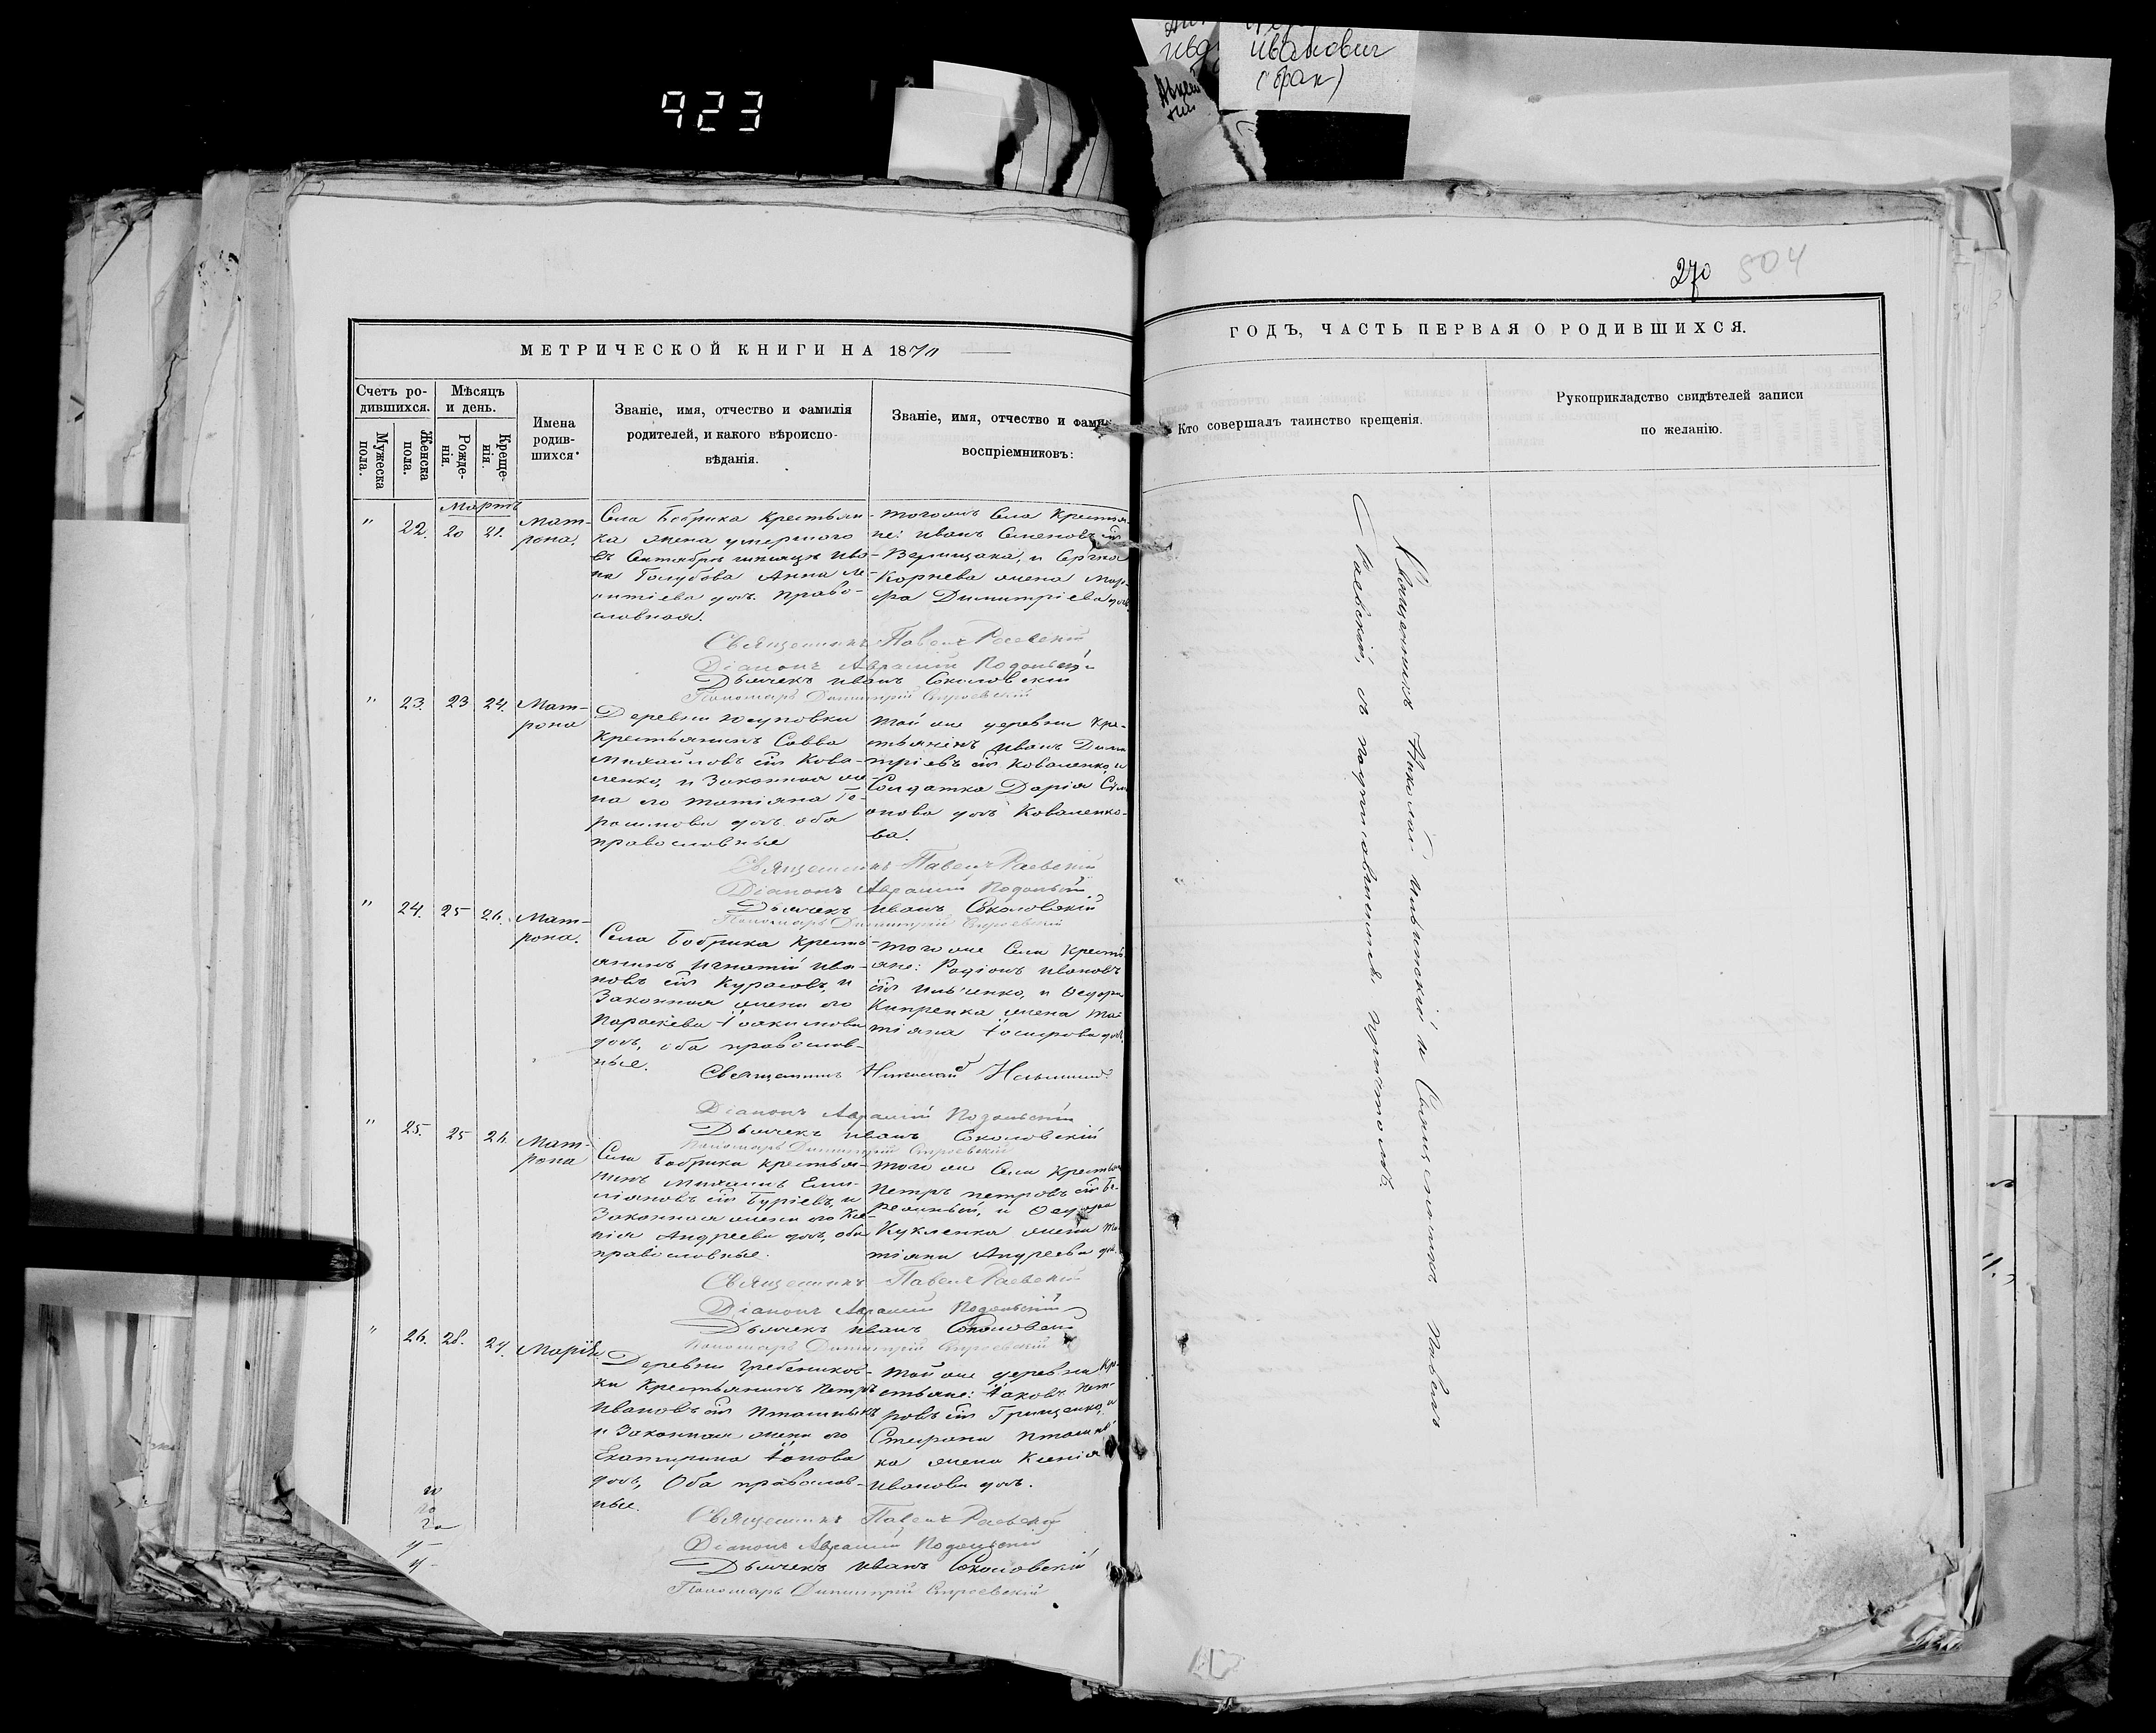 923
Иванович
(брак)
270 504
МЕТРИЧЕСКОЙ КНИГИ НА 1870
ГОДЪ, ЧАСТЬ ПЕРВАЯ О РОДИВШИХСЯ.
Счетъ ро-
дившихся.
Мужеска
пола.
Женска
пола.
Мѣсяцъ
и день.
Рожде-
нія.
Креще-
нія.
Имена
родив-
шихся.
Званіе, имя, отчество и фамилія
родителей, и какого вѣроиспо-
вѣданія.
Званіе, имя, отчество и фами
воспріемниковъ:
Кто совершалъ таинство крещенія.
Рукоприкладство свидѣтелей записи
по желанію.
Мартъ
" 22. 20 21. Мат-
рона.
Села Бобрика Крестьян-
ка жена умершаго
въ Сентябрѣ мѣсяцѣ Ива-
на Голубова Анна Ле-
онтіева дочь право-
славная.
тогожъ Села Крестья-
не: Иванъ Семеновъ сынъ
Верещака, и Сергѣя
Корнева жена Мар-
фа Димитріева дочь
Священникъ Павелъ Раевскій
Діаконъ Аврамій Подольскій
Дьячекъ Иванъ Соколовскій
Пономарь Димитрій Строевскій
" 23. 23 24. Мат-
рона
Деревни Юсуповки
Крестьянинъ Савва
Михайловъ сынъ Кова-
ленко, и Законная же-
на его Татіяна Ге-
расимова дочь оба
православные
той же деревни Кре-
стьянинъ Иванъ Дими
тріевъ сынъ Коваленко и
Солдатка Дарія Сим
онова дочь Коваленко-
ва.
Священникъ Павелъ Раевскій
Діаконъ Аврамій Подольскій
Дьячекъ Иванъ Соколовскій
Пономарь Димитрій Строевскій
" 24. 25 26. Мат-
рона.
Села Бобрика Кресть-
янинъ Игнатій Ива-
новъ сынъ Курасовъ, и
Законная жена его
Параскева Іоакимова
дочь, оба православ-
ные.
того же Села Крестья
яне: Родіонъ Ивановъ
сынъ Ильченко, и Ѳедора
Кипренка жена Та-
тіяна Іосифова дочь
Священникъ Николай Ильинскій
Діаконъ Аврамій Подольскій
Дьячекъ Иванъ Соколовскій
Пономарь Димитрій Строевскій
" 25. 25 26. Мат-
рона
Села Бобрика крестья-
нинъ Михаилъ Еми-
ліановъ сынъ Буріевъ, и
Законная жена его Ксе-
нія Андреева дочь, оба
православные.
того же Села Крестьян
Петръ Петровъ сынъ Бе-
режный, и Ѳедора
Кукленка жена Та-
тіяна Андреева доч.
Священникъ Павелъ Раевскій
Діаконъ Аврамій Подольскій
Дьячекъ Иванъ Соколовскій
Пономарь Димитрій Строевскій
" 26. 28. 29. Марія
Деревни Гребеников-
ки Крестьянинъ Петръ
Ивановъ сынъ Пташникъ
и Законная жена его
Екатерина Іонова
дочь, Оба православ-
ные.
той же деревни Кр-
естьяне: Іаковъ Пет-
ровъ сынъ Грищенко, и
Стефана Пташни
ка жена Ксенія
Иванова дочь.
Священникъ Павелъ Раевскій
Діаконъ Аврамій Подольскій
Дьячекъ Иванъ Соколовскій
Пономарь Димитрій Строевскій
Священникъ Николай Ильинскій и Священникъ Павелъ
Раевскій, съ подписавшимся причтомъ.